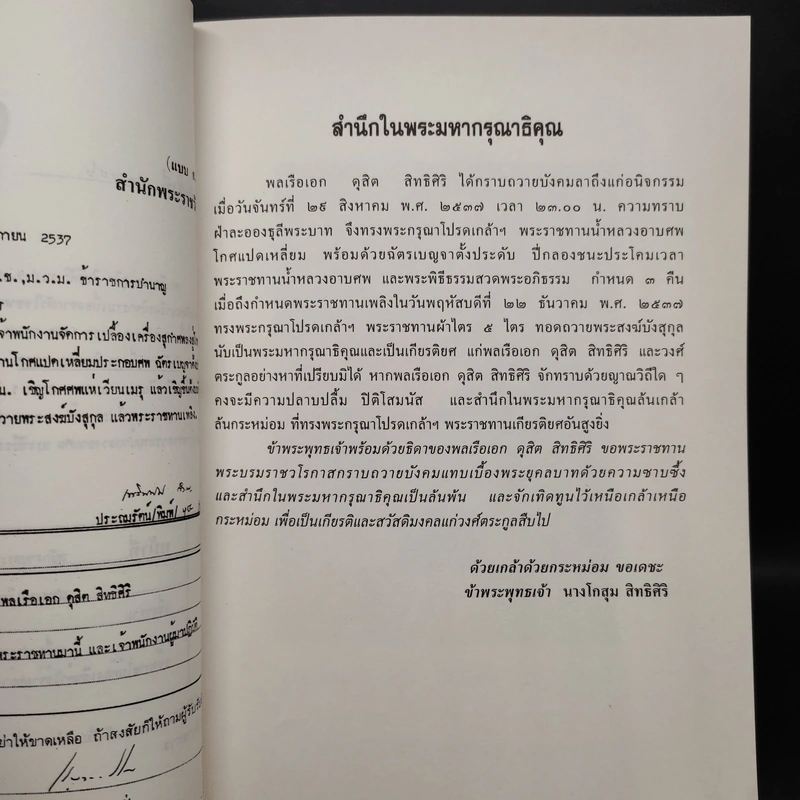 (แบบ
สำนักพระราช
ายน 2537
ช.,ม.ว.ม. ข้าราชการบำนาญ
ร
จ้าพนักงานจัดการเปลื้องเครื่องสุกำศพลง
านโกศแปดเหลี่ยมประกอบศพ ฉัตรเบญจาตั้ง
น. เชิญโกศศพแห่เวียนเมรุ แล้วเชิญขึ้น
วายพระสงฆ์บังสุกุล แล้วพระราชทานเพลิง.
ประถมรัตน์/พิมพ์/
พลเรือเอก ดุสิต สิทธิศิริ
พระราชทานมานี้ และเจ้าพนักงานผู้มาปฏิบัติ
ย่าให้ขาดเหลือ ถ้าสงสัยก็ให้ถามผู้รับ
สำนึกในพระมหากรุณาธิคุณ
พลเรือเอก ดุสิต สิทธิศิริ ได้กราบถวายบังคมลาถึงแก่อนิจกรรม
เมื่อวันจันทร์ที่ ๒๙ สิงหาคม พ.ศ. ๒๕๓๗ เวลา ๒๓.๐๐ น. ความทราบ
ฝ่าละอองธุลีพระบาท จึงทรงพระกรุณาโปรดเกล้าฯ พระราชทานน้ำหลวงอาบศพ
โกศแปดเหลี่ยม พร้อมด้วยฉัตรเบญจาตั้งประดับ ปี่กลองชนะประโคมเวลา
พระราชทานน้ำหลวงอาบศพ และพระพิธีธรรมสวดพระอภิธรรม กำหนด ๓ คืน
เมื่อถึงกำหนดพระราชทานเพลิงในวันพฤหัสบดีที่ ๒๒ ธันวาคม พ.ศ. ๒๕๓๗
ทรงพระกรุณาโปรดเกล้าฯ พระราชทานผ้าไตร ๕ ไตร ทอดถวายพระสงฆ์บังสุกุล
นับเป็นพระมหากรุณาธิคุณและเป็นเกียรติยศ แก่พลเรือเอก ดุสิต สิทธิศิริ และวงศ์
ตระกูลอย่างหาที่เปรียบมิได้ หากพลเรือเอก ดุสิต สิทธิศิริ จักทราบด้วยญาณวิถีใด ๆ
คงจะมีความปลาบปลื้ม ปิติโสมนัส และสำนึกในพระมหากรุณาธิคุณล้นเกล้า
ล้นกระหม่อม ที่ทรงพระกรุณาโปรดเกล้าฯ พระราชทานเกียรติยศอันสูงยิ่ง
ข้าพระพุทธเจ้าพร้อมด้วยธิดาของพลเรือเอก ดุสิต สิทธิศิริ ขอพระราชทาน
พระบรมราชวโรกาสกราบถวายบังคมแทบเบื้องพระยุคลบาทด้วยความซาบซึ้ง
และสำนึกในพระมหากรุณาธิคุณเป็นล้นพ้น และจักเทิดทูนไว้เหนือเกล้าเหนือ
กระหม่อม เพื่อเป็นเกียรติและสวัสดิมงคลแก่วงศ์ตระกูลสืบไป
ด้วยเกล้าด้วยกระหม่อม ขอเดชะ
ข้าพระพุทธเจ้า นางโกสุม สิทธิศิริ